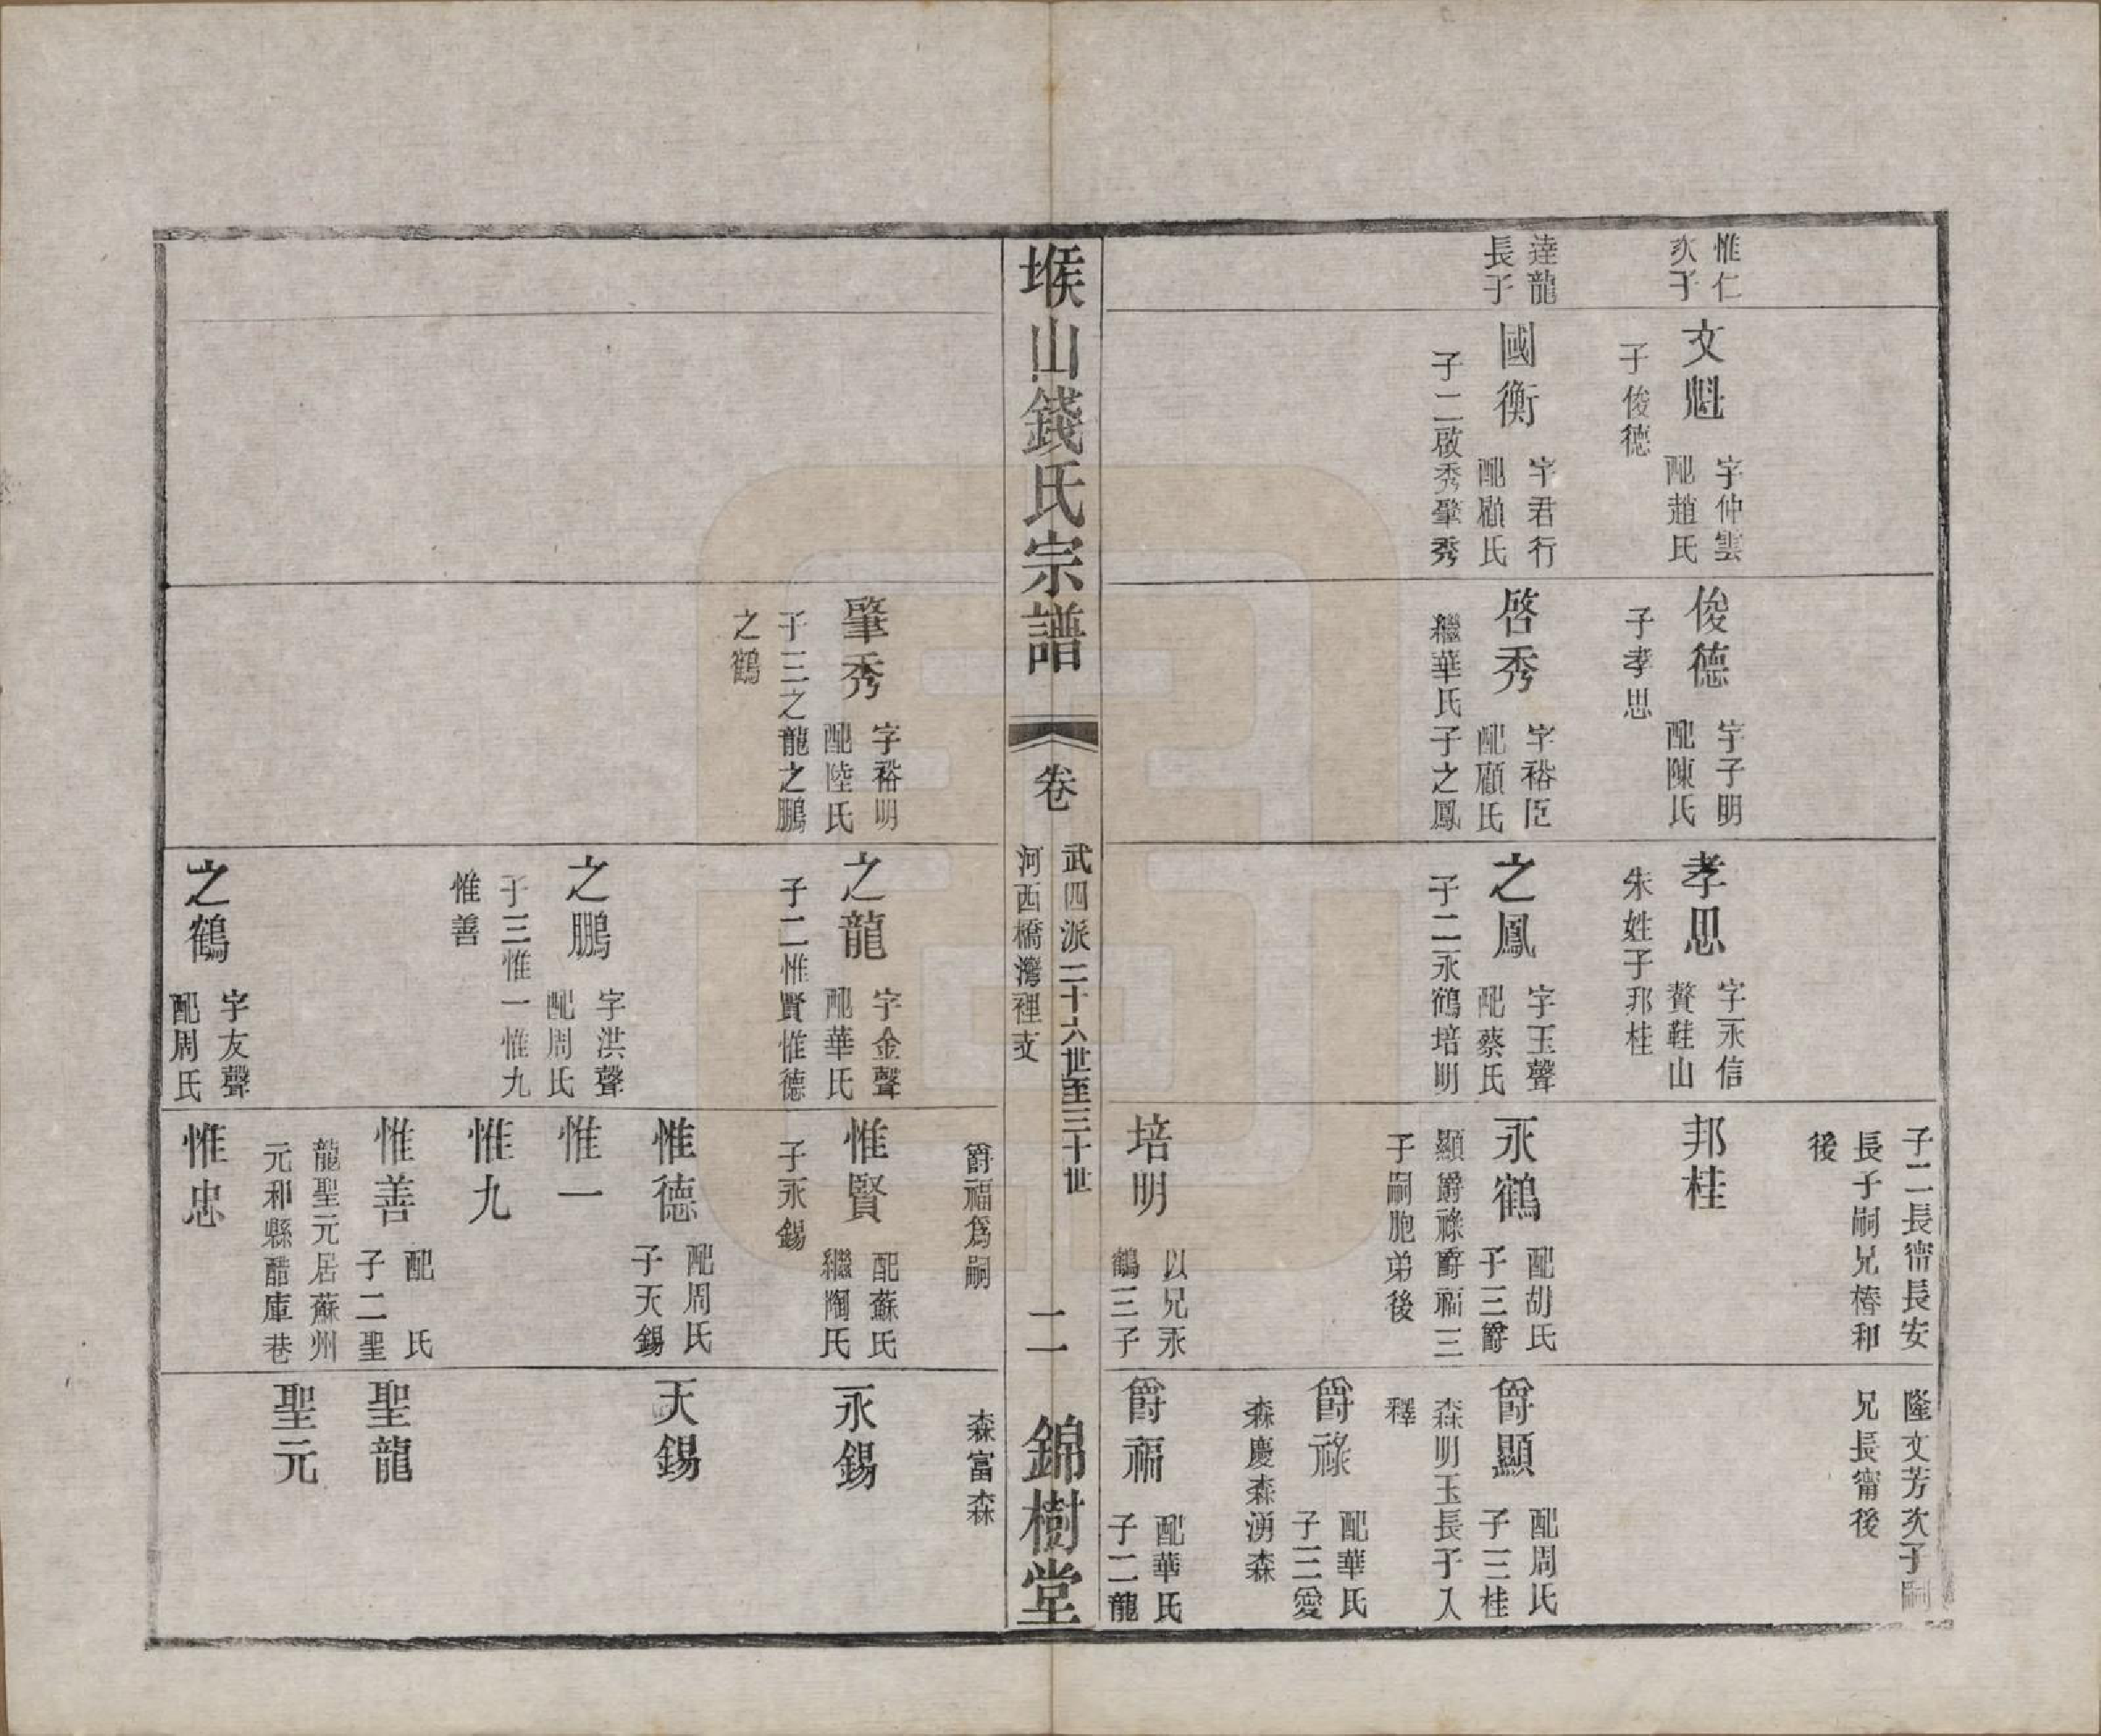 惟仁
次子
逹龍
長子
文魁
字仲雲
配趙氏
子俊德
國衡
字君行
配顧氏
子二啟秀肇秀
俊德
字子明
配陳氏
子孝思
啓秀
字裕臣
配顧氏
繼華氏子之鳳
孝思
字永信
贅鞋山
朱姓子邦桂
之鳳
字玉聲
配蔡氏
子二永鶴培明
子二長甯長安
長子嗣兄椿和
後
邦桂
永鶴
配胡氏
子三爵
顯爵祿爵福三
子嗣胞弟後
培明
以兄永
鶴三子
隆文芳次子嗣
兄長甯後
爵顯
配周氏
子三桂
森明玉長子入
釋
爵祿
配華氏
子三愛
森慶森湧森
爵福
配華氏
子二龍
堠山錢氏宗譜
卷
武四派二十六世至三十世
河西橋灣裡支
二
錦樹堂
肇秀
字裕明
配陸氏
子三之龍之鵬
之鶴
之龍
字金聲
配華氏
子二惟賢惟德
之鵬
字洪聲
配周氏
子三惟一惟九
惟善
之鶴
字友聲
配周氏
爵福爲嗣
惟賢
配蘇氏
繼陶氏
子永錫
惟德
配周氏
子天錫
惟一
惟九
惟善
配 氏
子二聖
龍聖元居蘇州
元和縣醋庫巷
惟忠
森富森
永錫
天錫
聖龍
聖元